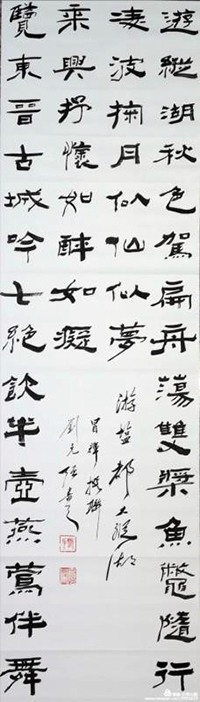 遊縱湖秋色駕扁舟蕩雙槳魚鼈隨行
凌波掬月似仙似夢
覽東晉古城吟七絕飲半壺燕鶯伴舞
乘興抒懷如醉如癡
游盐都大縱湖
撰聯
劉元